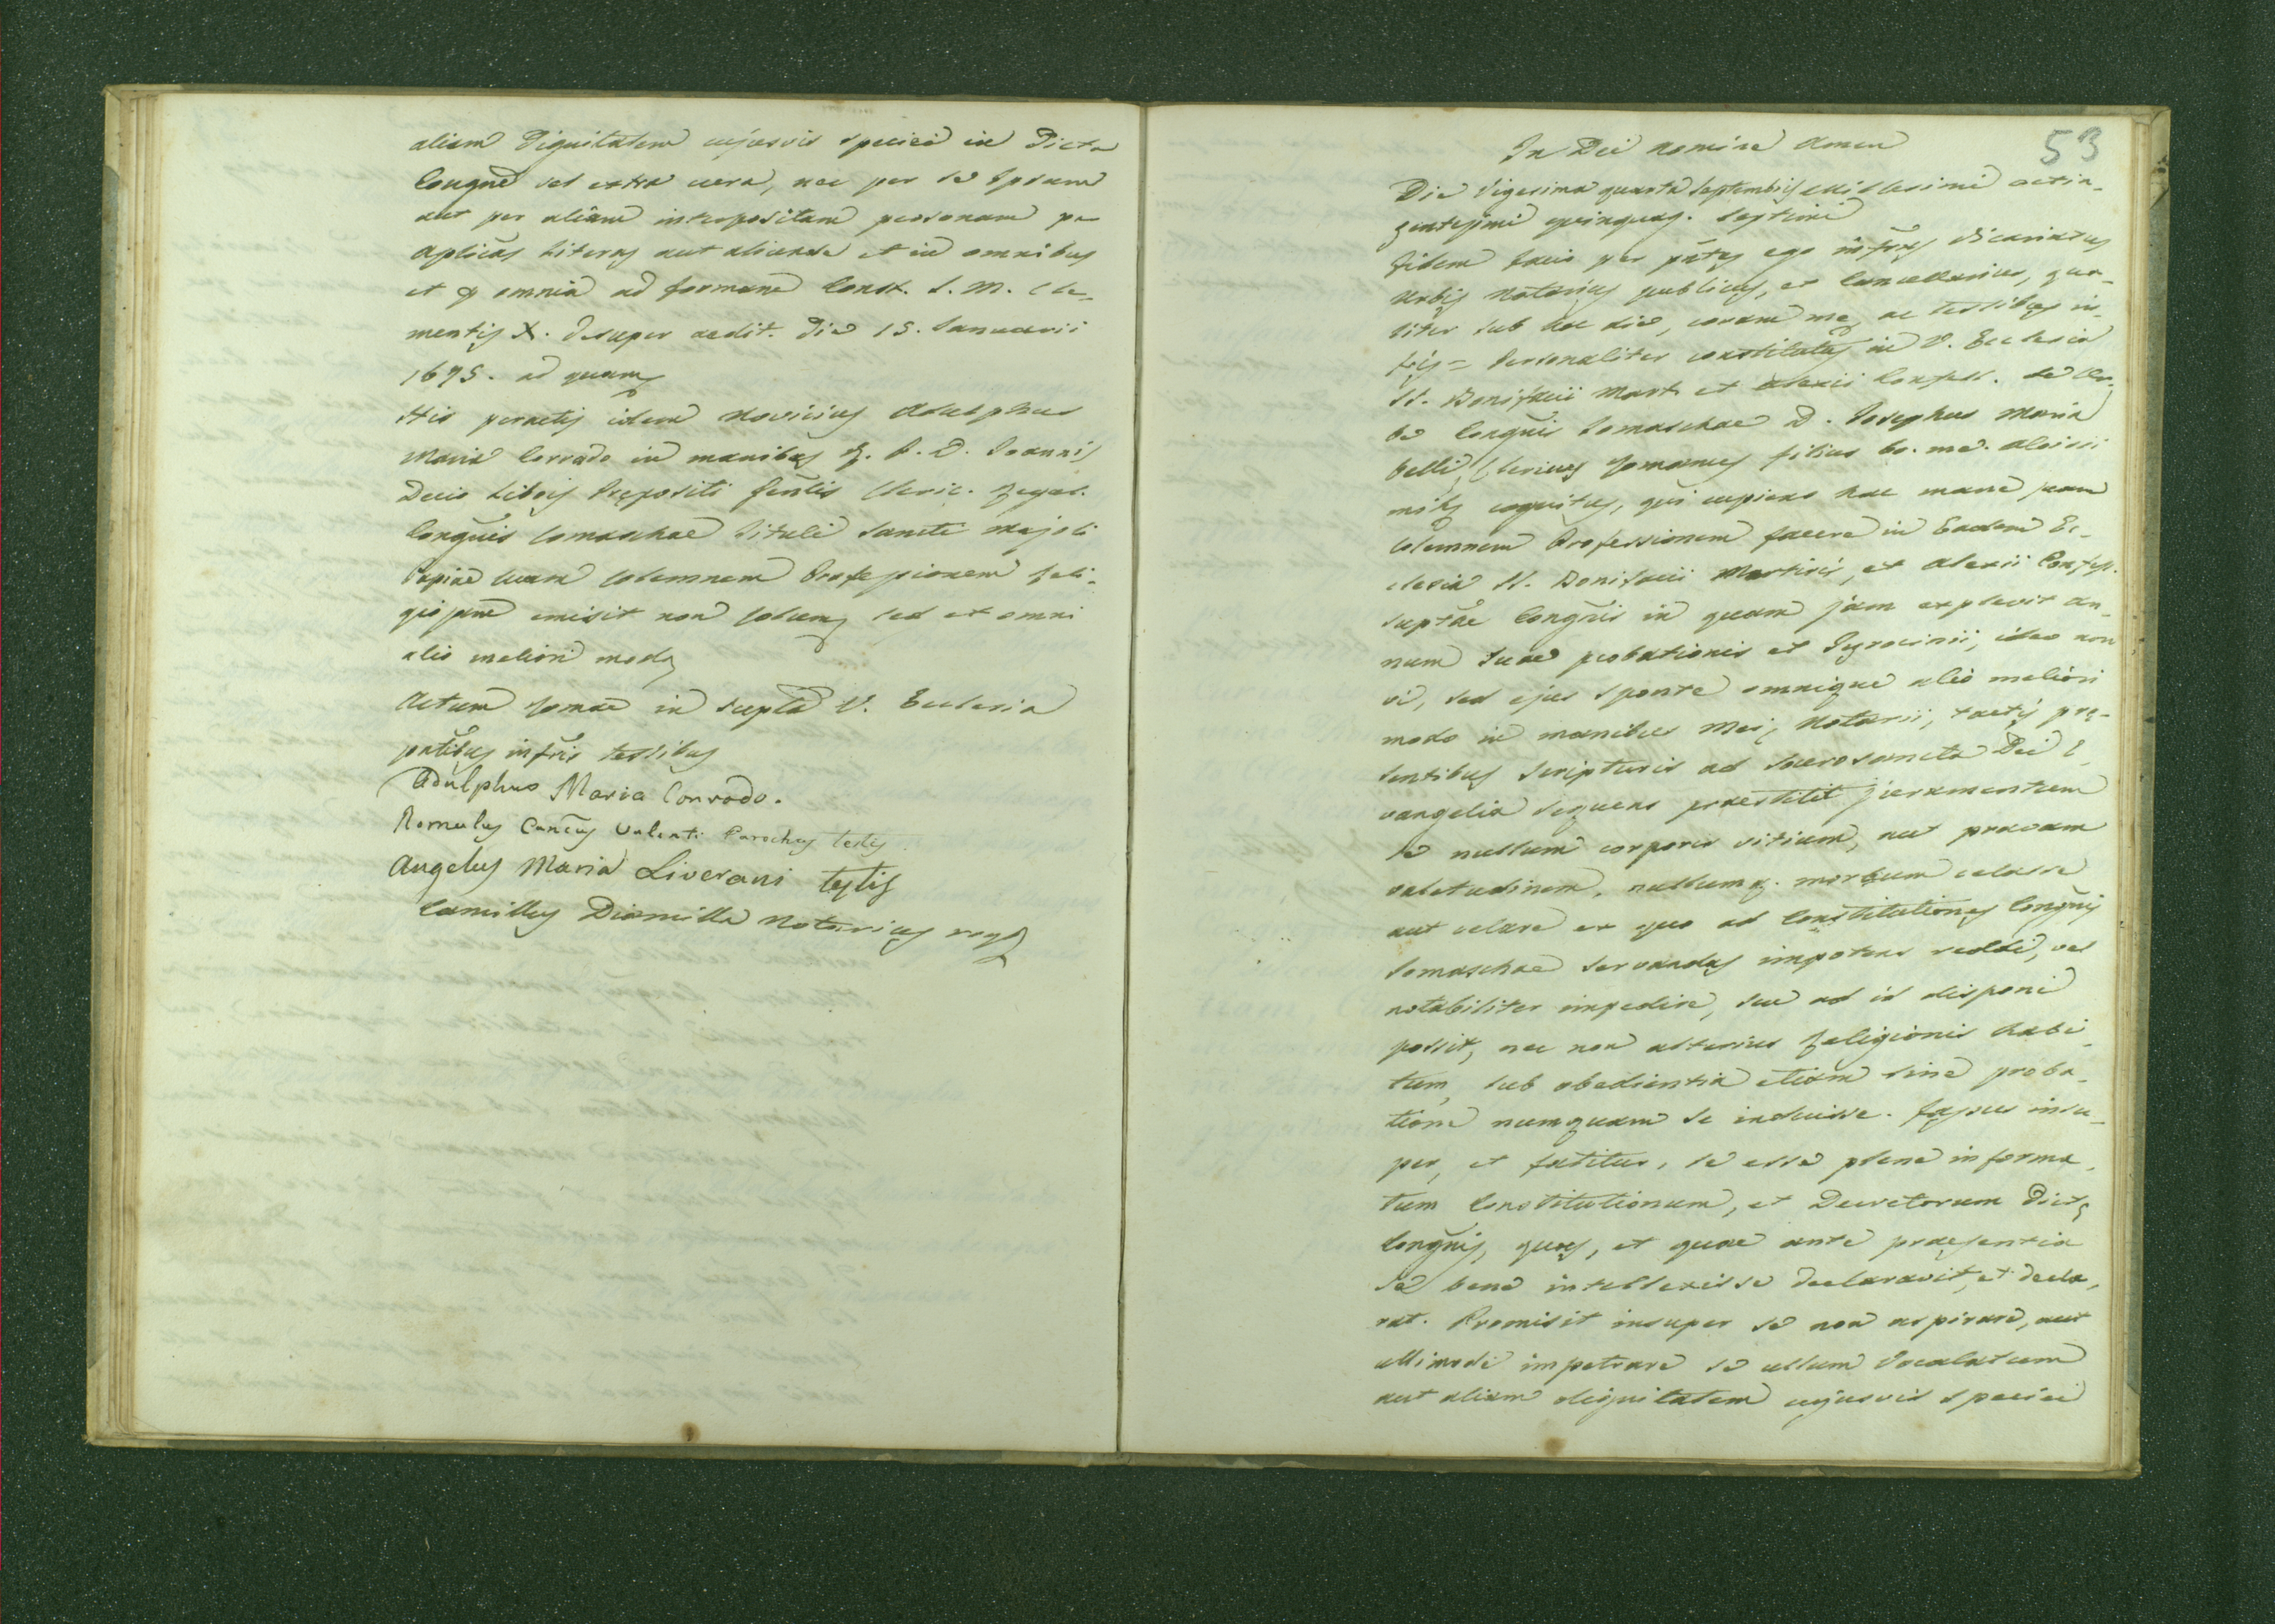 aliam Dignitatem cujusvis speciei in Dicta
Congne vel extra eam, nec per se Ipsum
aut per aliam interpositam personam pr
Aplicas Literas aut aliunde et in omnibus
et p omnia ad formam Const. S. M. Cle-
mentis X. desuper aedit. Die 15. Januarii
1675. ad quam
His peractis idem Novicius Adulphus
Maria Conrado in manibus R. P. D. Joannis
Decio Libois Prepositi Genlis Cleric. Regul.
Congnis Somaschae Tituli Sancti Majoli
Papiae suam solemnem Professionem Reli-
giosam emisit non solum sed et omni
alio meliori modo
Actum Romae in supta V. Ecclesia
pntibus infris testibus
Adulphus Maria Conrado.
Romulus Valenti Parochus testis
Angelus Maria Liverani testis
Camillus Diamilla Notarius rogs
53
In Dei nomine Amen
Die Vigesima quarta Septembris Millesimi octin-
gentesimi quinquag. septimi
Fidem facio per pntes ego infrus Vicariatus
Urbis Notarius publicus, et Cancellarius, qua-
liter sub hac die, coram me, ac testibus in-
fris = Personaliter constitutus in V. Ecclesia
SS. Bonifacii Mart. et Alexii Confess. de Ur-
be Congnis Somaschae D. Josephus Maria
Belli, Clericus Romanus filius bo. me. Aloisii
mihi cognitus, qui cupiens hac mane suam
solemnem Professionem facere in Eadem Ec-
clesia SS. Bonifacii Martiris, et Alexii Confess.
suptae Congnis in quam jam explevit an-
num suae probationis et Tyrocinii, ideo non
vi, sed ejus sponte omnique alio meliori
modo in manibus Mei, Notarii, tactis pre-
sentibus Scripturis ad Sacrosancta Dei E-
vangelia sequens praestitit juramentum
se nullum corporis vitium, aut pravam
valetudinem, nullumq. morbum celasse
aut celare ex quo ad Constitutiones Congnis
Somaschae servandas impotens reddi, vel
notabiliter impedire, seu ad id disponi
possit, nec non alterius Religionis habi-
tum, sub obedientia etiam sine proba-
tione numquam se induisse. Fassus insu-
per, et fatitur, se esse plene informa-
tum Constitutionum, et Decretorum Dicte
Congnis, quas, et quae ante praesentia
se bene intellexisse declaravit, et decla-
rat. Promisit insuper se non aspirare, aut
ullimode impetrare se ullum Vocalatum
aut aliam dignitatem cujusvis speciei